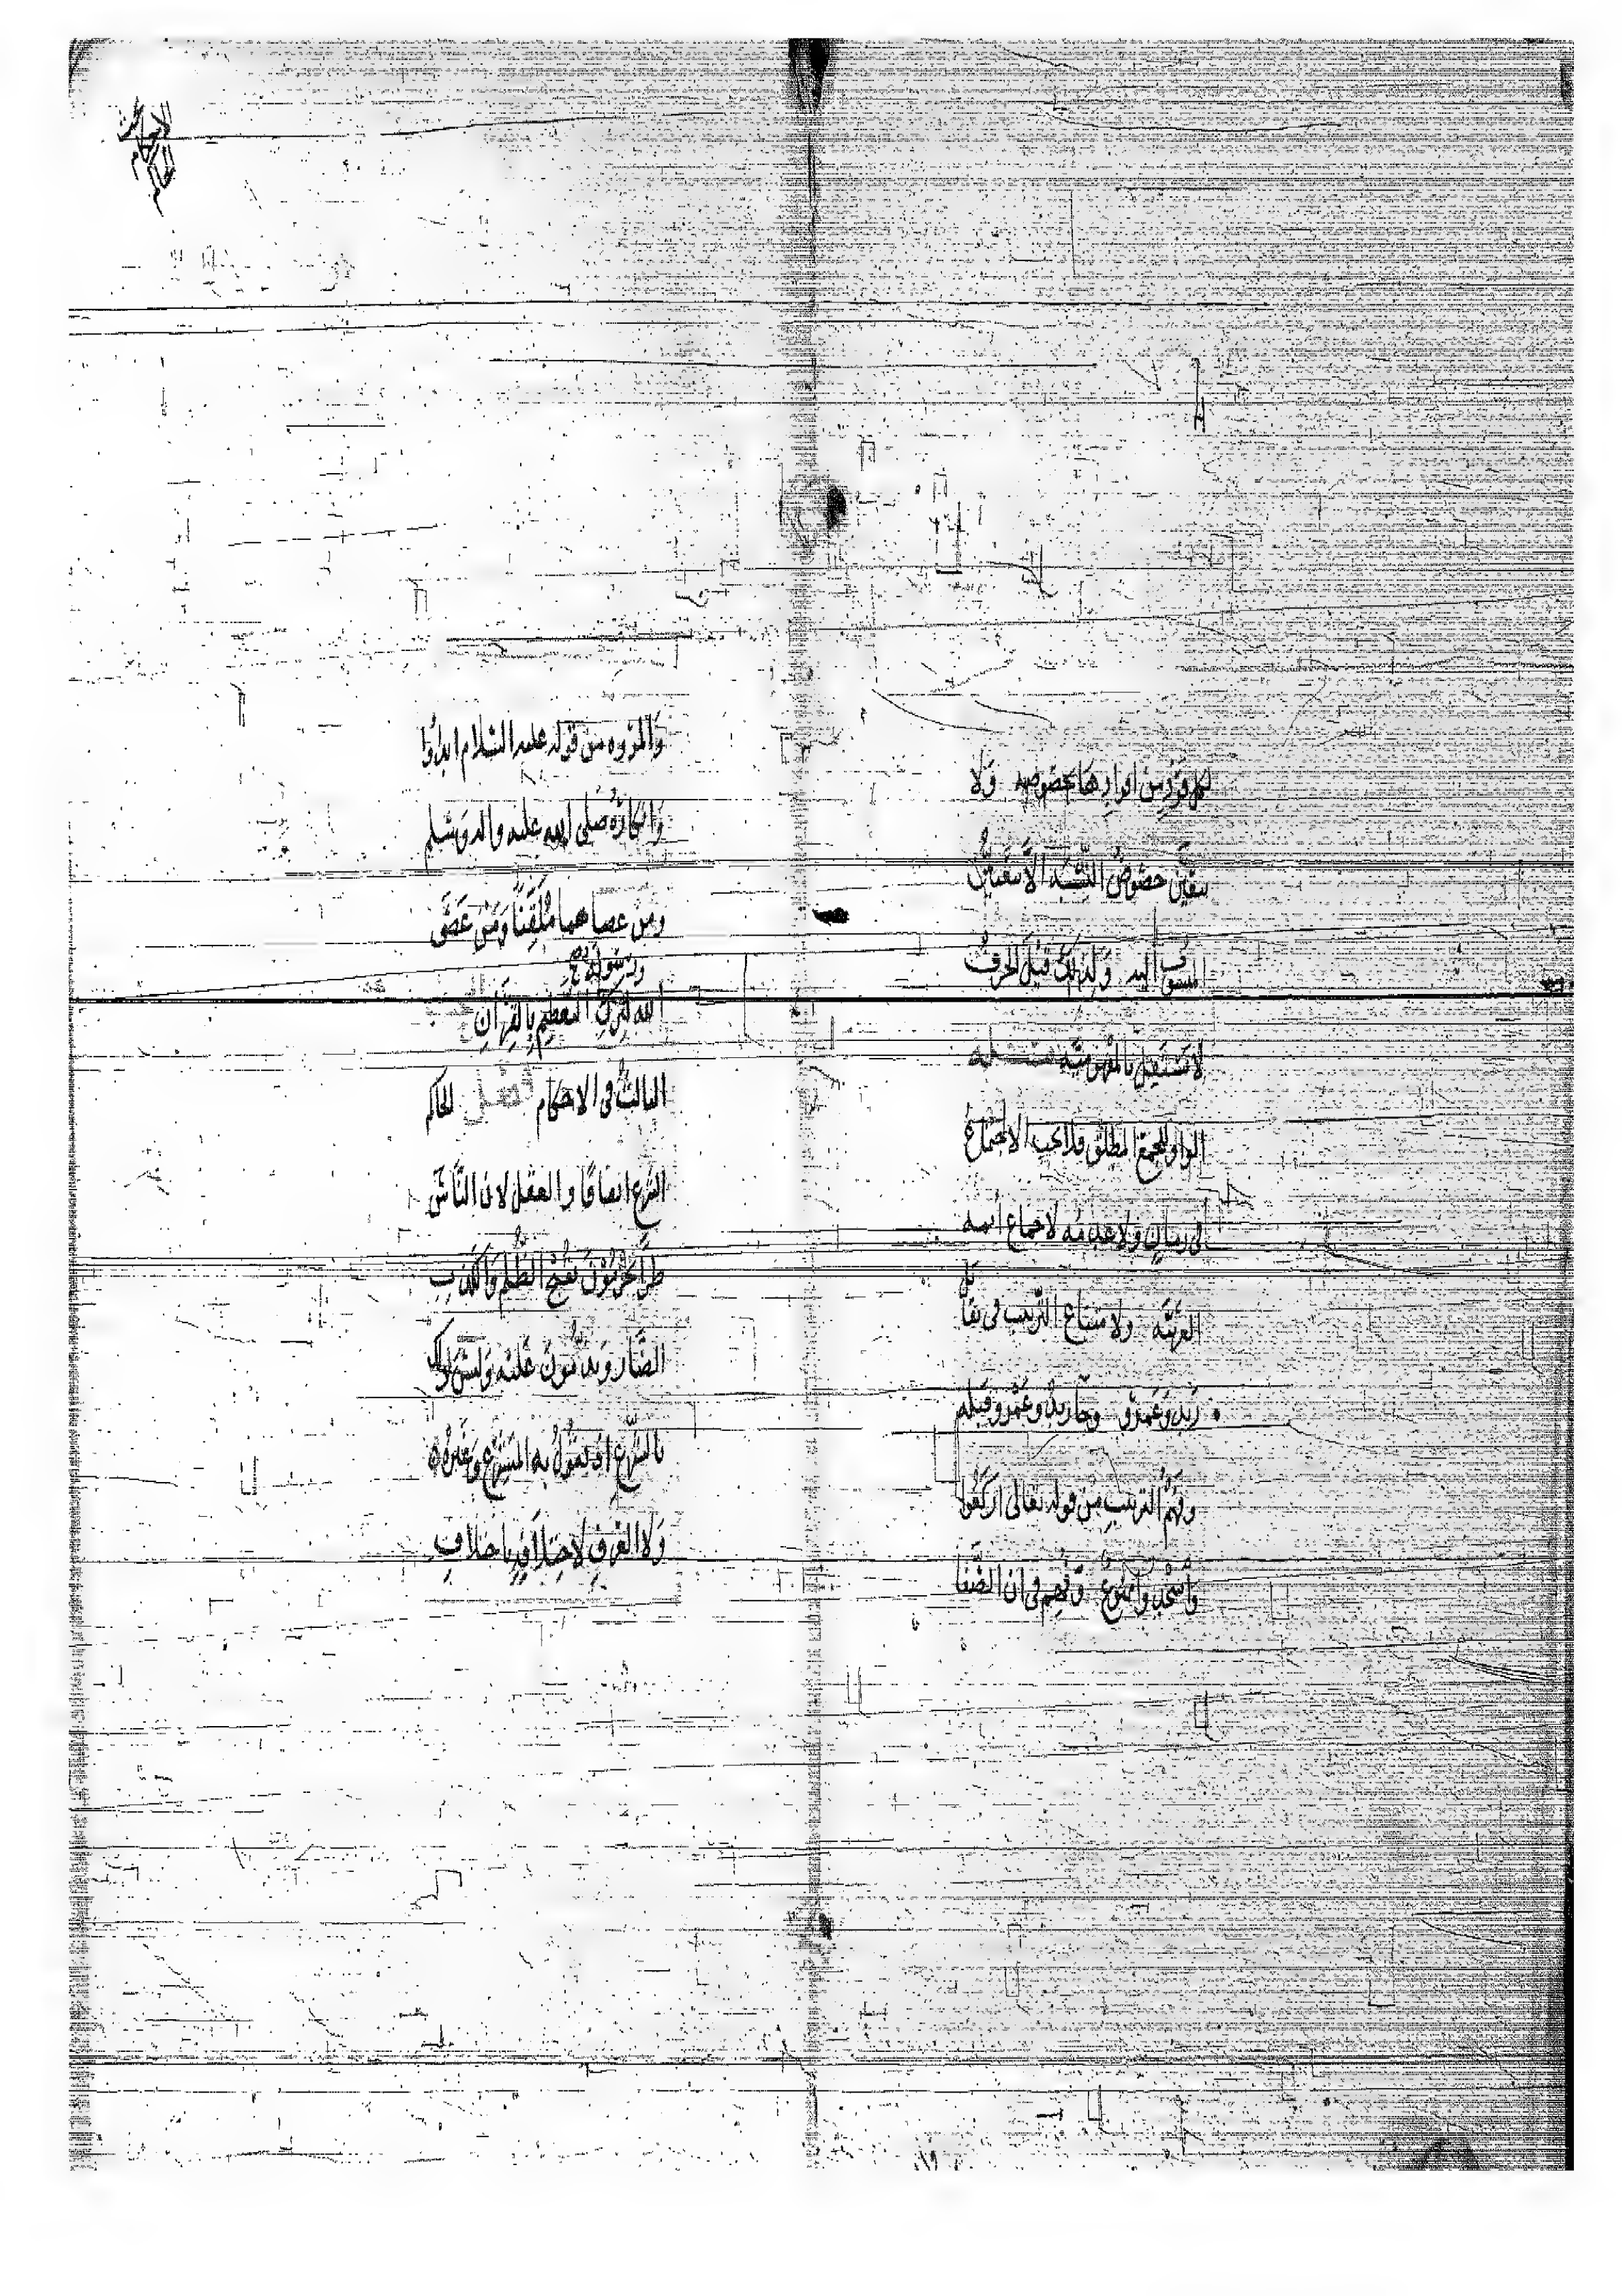 لكل فردٍ من افرادِها بخصوصه ولا
يتعيّن خصوصُ النسبة الا بتعيّن
المنسوب اليه ولذلك قيل الحرف
لا تستقل بالمفهومية مسئلة
الواو للجمع المطلق فلا يجب الاجتماع
فى زمانٍ ولا عدمه لاجماع ائمه
العربيّة ولامتناع الترتيب فى تقاتل
زيد وعمرو وجا زيدٌ وعمرو قبله
وفهم الترتيبِ من قوله تعالى اركعوا
واسجدوا ممنوعٌ وفهم فى ان الصّفا
والمروه من قوله عليه السلام ابدؤا
وانكارُه صلى الله عليه واله وسلم
ومن عصاهما مُلَقِّنًا ومَنْ عَصَى
الله ورسوله لِتركِ التعظيم بالقِرآنِ
الثالث فى الاحكام فصل الحاكم
الشرع اتفاقًا والعقل لان النّاسَ
طرًّا يجزمُوْنَ بقبح الظُّلم والكذبِ
الضَّار ويذمّونَ عليه وليس ذلك
بالشّرع اذ يقولُ به المتشرّع وغيرُه
ولا العرفِ لاختلافِه باختلافِ